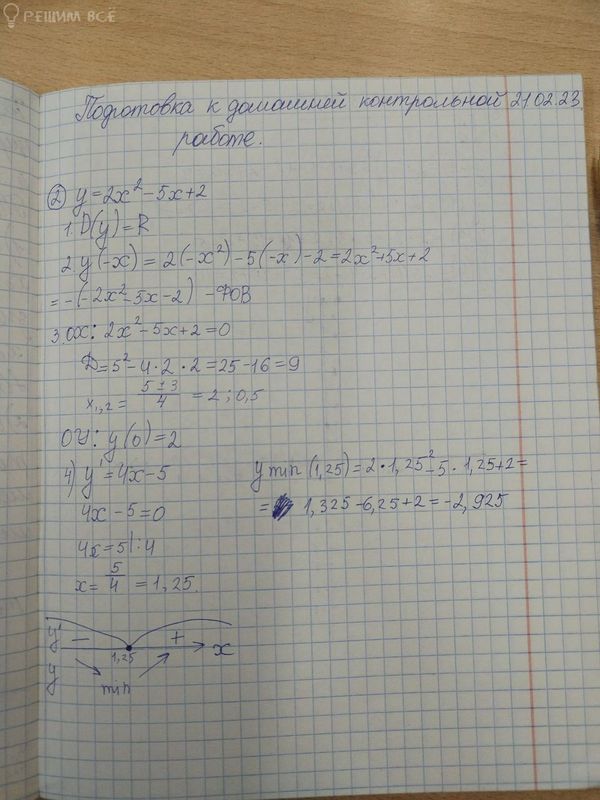 РЕШИМ ВСЁ
Подготовка к домашней контрольной 21.02.23.
работе.
② y=2x²-5x+2
1. D(y)=R
2. y(-x) = 2(-x²)-5(-x)-2=2x²+5x+2
=-(-2x²-5x-2) -ФОВ
3. OX: 2x²-5x+2=0
D=5²-4·2·2=25-16=9
x₁,₂= (5±3)/4 = 2; 0,5
OY: y(0)=2
4) y'=4x-5
4x-5=0
4x=5|:4
x= 5/4 =1,25.
y min (1,25)=2·1,25²-5·1,25+2=
= 1,325-6,25+2=-2,925
y' - + x
1,25
y min